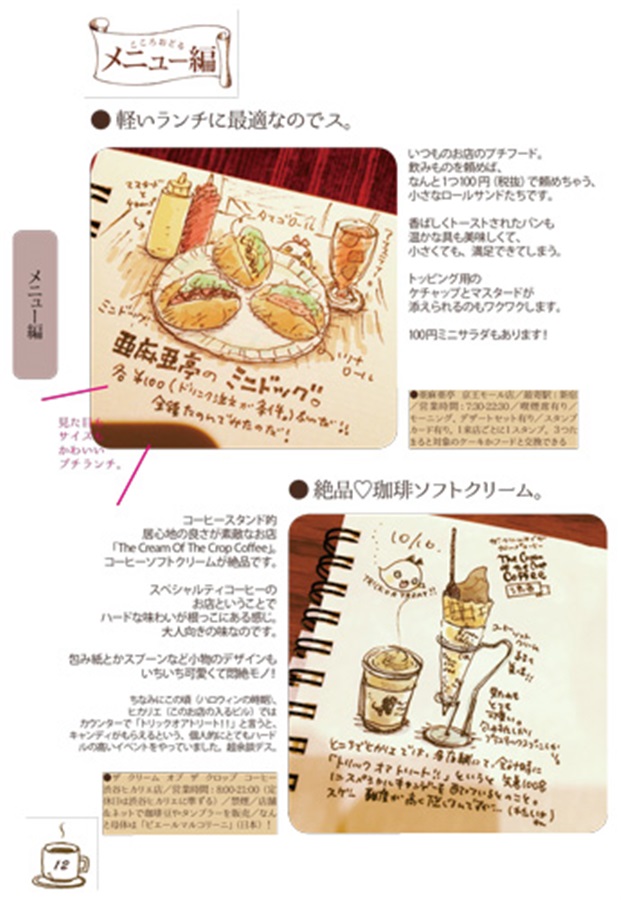 こころおどる
メニュー編
● 軽いランチに最適なのでス。
いつものお店のプチフード。
飲みものを頼めば、
なんと1つ100円（税抜）で頼めちゃう、
小さなロールサンドたちです。
香ばしくトーストされたパンも
温かな具も美味しくて、
小さくても、満足できてしまう。
トッピング用の
ケチャップとマスタードが
添えられるのもワクワクします。
100円ミニサラダもあります！
マスタード
タマゴロール
ミニドッグ
ツナ
ロール
亜麻亜亭の ミニドッグ。
各¥100（ドリンク注文が条件。）なんだ!!
全種たのんでみたのだ！
メニュー編
見た目も
サイズも
かわいい
プチランチ。
●亜麻亜亭 京王モール店／最寄駅：新宿
／営業時間：7:30-22:30／喫煙席有り／
モーニング、デザートセット有り／スタンプ
カード有り。1来店ごとに1スタンプ、3つた
まると対象のケーキかフードと交換できる
● 絶品♡珈琲ソフトクリーム。
コーヒースタンド的
居心地の良さが素敵なお店
「The Cream Of The Crop Coffee」。
コーヒーソフトクリームが絶品です。
スペシャルティコーヒーの
お店ということで
ハードな味わいが根っこにある感じ。
大人向きの味なのです。
包み紙とかスプーンなど小物のデザインも
いちいち可愛くて悶絶モノ！
ちなみにこの頃（ハロウィンの時期）、
ヒカリエ（このお店の入るビル）では
カウンターで「トリックオアトリート!!」と言うと、
キャンディがもらえるという、個人的にとてもハード
ルの高いイベントをやっていました。超余談デス。
10/10.
The Cream
of the Crop
Coffee
コーヒーソフト
クリーム
「トリックオアトリート!!」というと 先着100名
●ザ クリーム オブ ザ クロップ コーヒー
渋谷ヒカリエ店／営業時間：8:00-21:00（定
休日は渋谷ヒカリエに準ずる）／禁煙／店舗
＆ネットで珈琲豆やタンブラーを販売／なん
と母体は「ピエールマルコリーニ」（日本）！
12